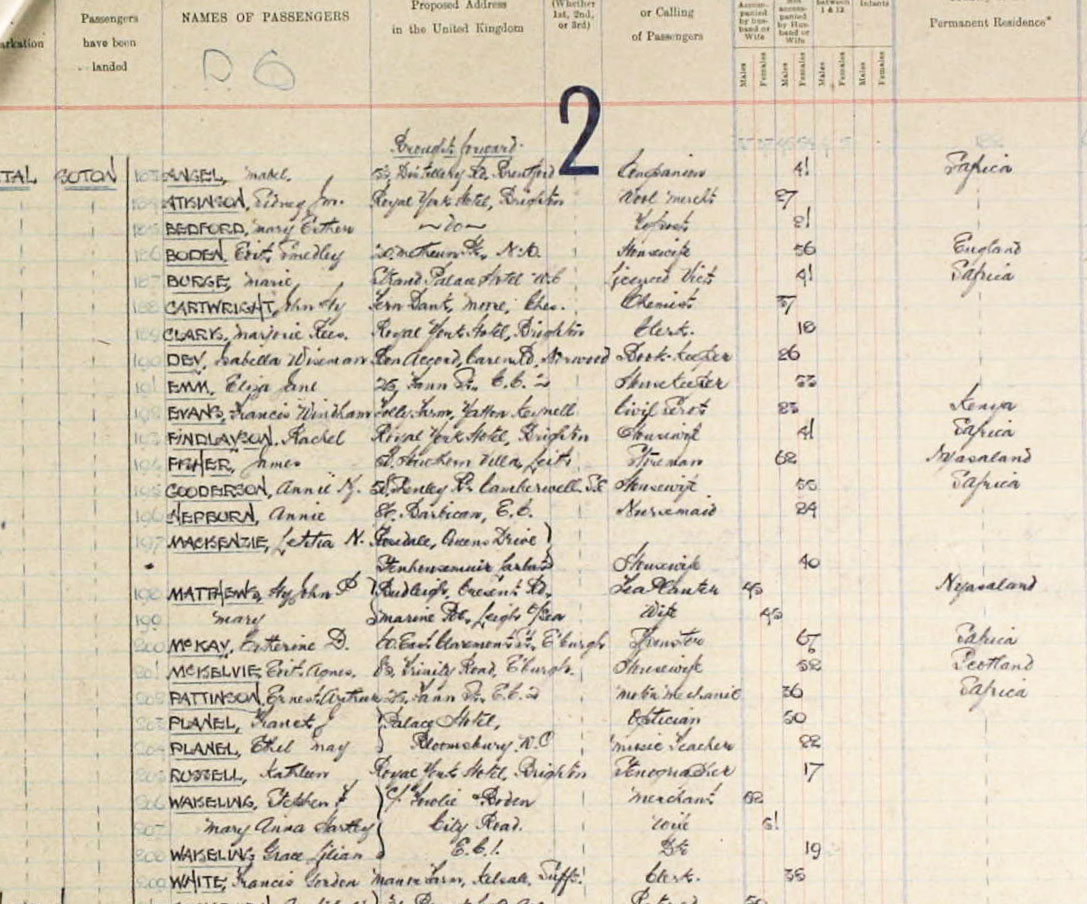 arkation
Passengers have been landed
NAMES OF PASSENGERS
Proposed Address in the United Kingdom
(Whether 1st, 2nd, or 3rd)
or Calling of Passengers
Accompanied by husband or Wife
Not accompanied by Husband or Wife
between 1 & 12
Infants
Males Females Males Females Males Females Males Females
Permanent Residence*
2
Brought forward
TAL SOTON 183 ANGEL, Mabel. Distillery Rd, Brentford Companion 41 S africa
184 ATKINSON, Sidney Jno. Royal York Hotel, Brighton Wool Merch't 27
185 BEDFORD, Mary Esther ~do~ Typist 21
186 BODEN, Edith Smedley N.W. Housewife 56 England
187 BURGE, Marie Strand Palace Hotel WC Licenced Vict's 41 S africa
188 CARTWRIGHT, John Hy Moore, Ches. Chemist 37
189 CLARK, Marjorie Rees. Royal York Hotel, Brighton Clerk. 18
190 DEY, Isabella Wiseman Bon Accord, Norwood Book-keeper 26
191 EMM, Eliza Jane Fann St, E.C. 2 Housekeeper 53
192 EVANS, Francis Windham Farm, Yatton Keynell Civil Serv't 25 Kenya
193 FINDLAYSON, Rachel Royal York Hotel, Brighton Housewife 41 S africa
194 FISHER, James Villa, Leith Fireman 62 Nyasaland
195 GOODERSON, Annie Camberwell, S.E Housewife 55 S africa
196 HEPBURN, Annie Barbican, E.C. Nursemaid 24
197 MACKENZIE, Letitia N. Rosedale, Queens Drive
Housewife 40
198 MATTHEWS, Hy John P Budleigh, Crescent Rd, Tea Planter 45 Nyasaland
199 Mary Marine Leigh o/Sea Wife 45
200 McKAY, Catherine D. East Claremont St. E'burgh Spinster S africa
201 McKELVIE, Edith Agnes. Trinity Road, E'burgh. Housewife 52 Scotland
202 PATTINSON, Ernest Arthur Fann St, E.C. 2 Motor Mechanic 36 S africa
203 PLANEL, J Palace Hotel, Optician 50
204 PLANEL, Ethel May Bloomsbury. W.C Music Teacher 22
205 RUSSELL, Kathleen Royal York Hotel, Brighton 17
206 WAKELING, Stephen F c/o Boden Merchant 52
207 Mary Anna Hartley City Road. Wife 51
208 WAKELING, Grace Lilian E.C.1. 19
209 WHITE, Francis Gordon Manor Farm, Kelsale, Suff. Clerk. 35